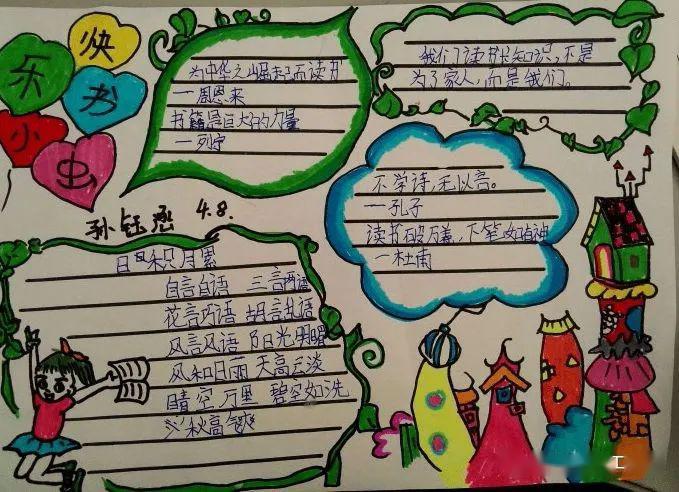 快
乐
书
小
虫
为中华之崛起而读书
一周恩来
书籍是巨大的力量
一列宁
我们读书长知识,不是
为了家人,而是我们。
不学诗,无以言。
一孔子
读书破万卷,下笔如有神
一杜甫
孙钰 4.8.
日积月累
自言自语 三言两语
花言巧语 胡言乱语
风言风语 阳光明媚
风和日丽 天高云淡
晴空万里 碧空如洗
秋高气爽
工